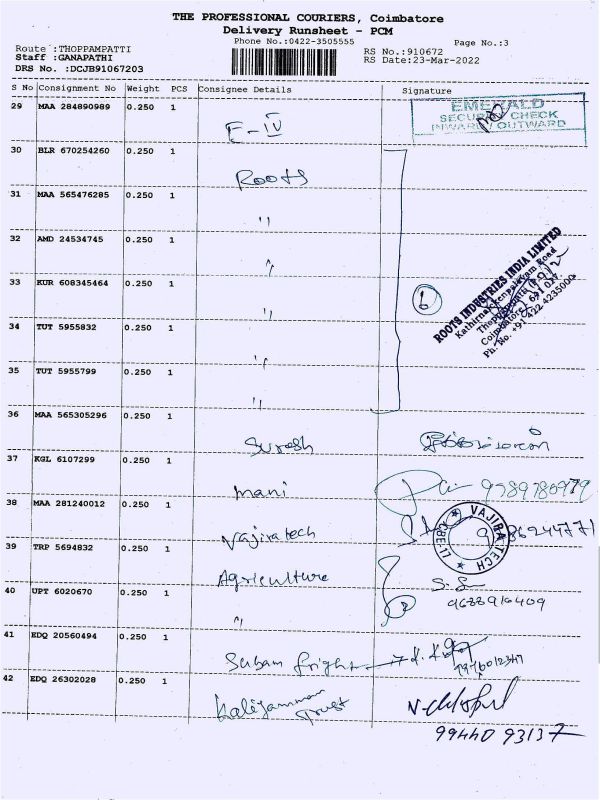 THE PROFESSIONAL COURIERS, Coimbatore
Delivery Runsheet - PCM
Phone No.:0422-3505555
Page No.:3
Route :THOPPAMPATTI
Staff :GANAPATHI
DRS No. :DCJB91067203
RS No.:910672
RS Date:23-Mar-2022
S No Consignment No Weight PCS Consignee Details Signature
29 MAA 284890989 0.250 1 E-IV
EMERALD
SECURITY CHECK
INWARD / OUTWARD
30 BLR 670254260 0.250 1 Roots
31 MAA 565476285 0.250 1 "
32 AMD 24534745 0.250 1 "
33 KUR 608345464 0.250 1 "
6
ROOTS INDUSTRIES INDIA LIMITED
Kathirnaickenpalayam Road
Thoppampatti (P.O.)
Coimbatore - 641 017.
Ph. No. +91 422 4235000
34 TUT 5955832 0.250 1 "
35 TUT 5955799 0.250 1 "
36 MAA 565305296 0.250 1 Suresh
37 KGL 6107299 0.250 1 mani 9789780979
38 MAA 281240012 0.250 1 Vajira tech
VAJIRA TECH
CBE-17
39 TRP 5694832 0.250 1 Agriculture
40 UPT 6020670 0.250 1 "
41 EDQ 20560494 0.250 1 Subam fright
42 EDQ 26302028 0.250 1 Kaliyamman Trust
99440 93137